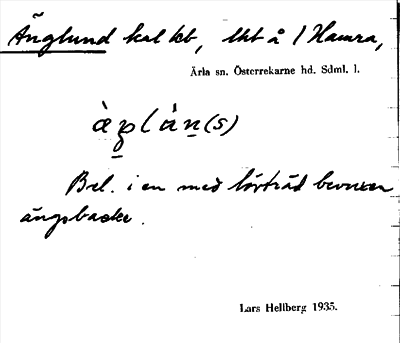 Änglund kal kt, lht å 1 Hamra,
Ärla sn. Österrekarne hd. Sdml. l.
Bel. i en med lövträd bevuxen
ängsbacke.
Lars Hellberg 1935.